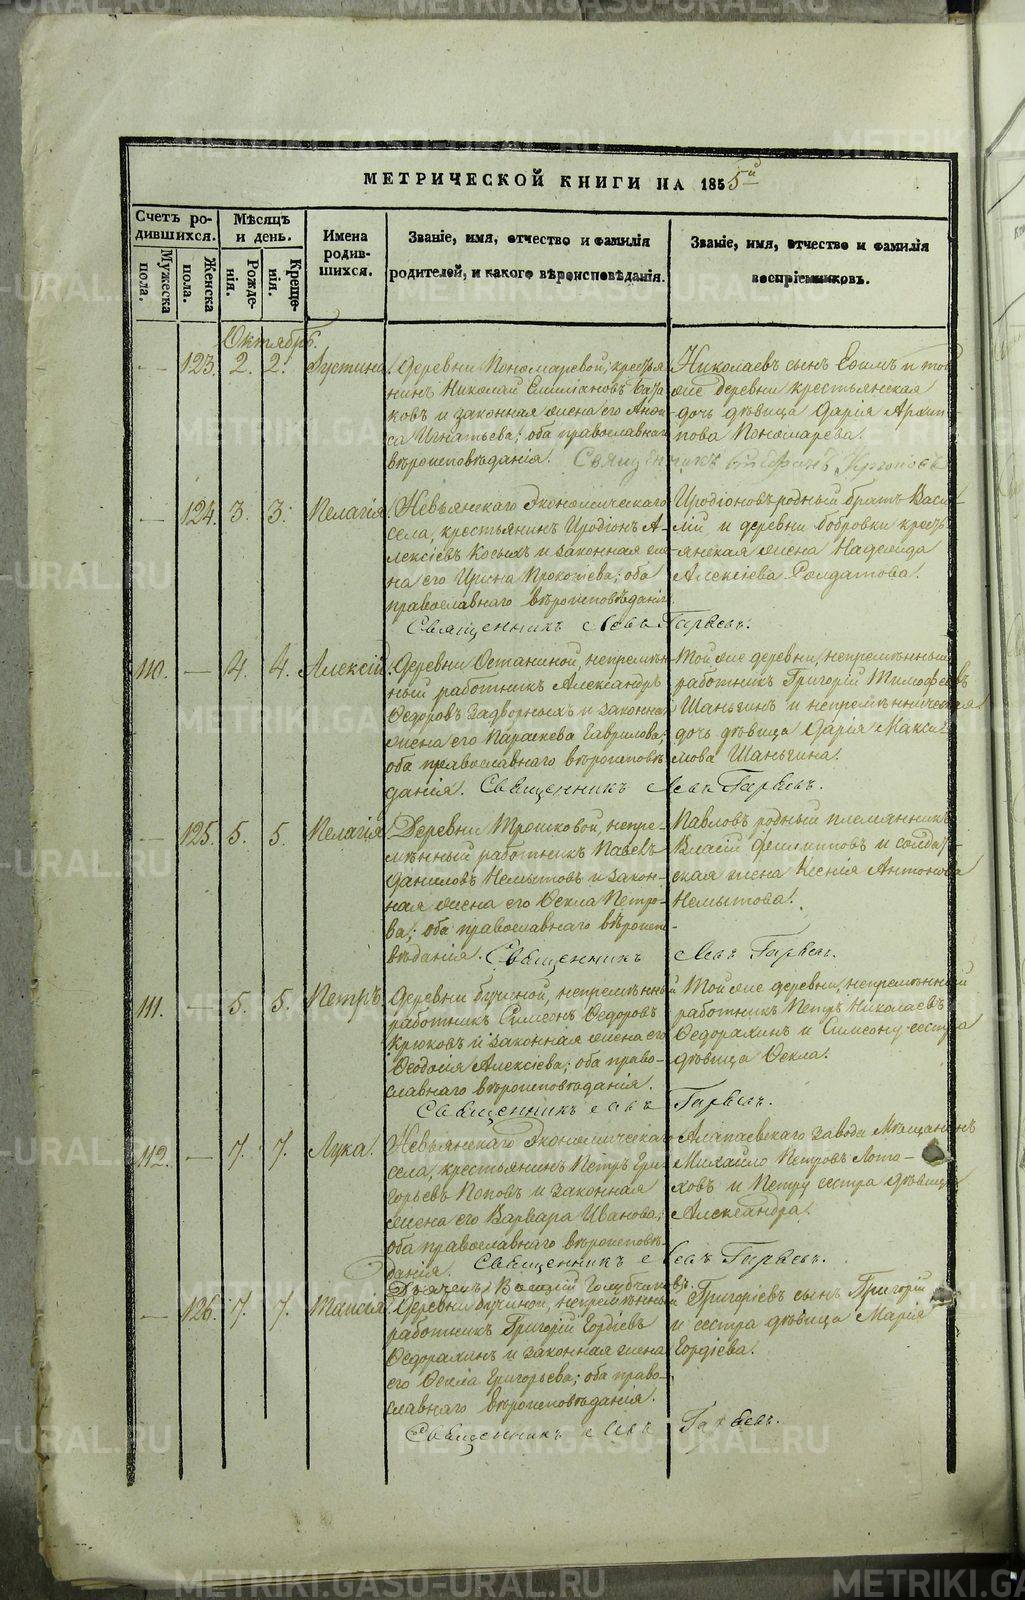 МЕТРИЧЕСКОЙ КНИГИ НА 1855й
Счетъ ро-
дившихся.
Мужеска
пола.
Женска
пола.
Мѣсяцъ
и день.
Рожде-
нія.
Креще-
нія.
Имена
родив-
шихся.
Званіе, имя, отчество и фамилія
родителей, и какого вѣроисповѣданія.
Званіе, имя, отчество и фамилія
воспріемниковъ.
Октябрь.
— 123. 2. 2. Іустина
Деревни Пономаревой, крестья-
нинъ Николай Емиліановъ
ковъ и законная жена его Анфи-
са Игнатьева; оба православнаго
вѣроисповѣданія.
Николаевъ сынъ Ефимъ и той
же деревни крестьянская
дочь дѣвица Дарія Архип-
пова Пономарева.
Священникъ
— 124. 3. 3. Пелагія.
Невьянскаго Экономическаго
села, крестьянинъ Иродіонъ А-
лексіевъ Косыхъ и законная же-
на его Ирина Прокопіева; оба
православнаго вѣроисповѣданія.
Иродіоновъ родный братъ Васи-
лій и деревни Бобровки кресть-
янская жена Надежда
Алексіева Солдатова.
Священникъ Левъ Гаряевъ.
110. — 4. 4. Алексій.
Деревни Останиной, непремѣн-
ный работникъ Александръ
Ѳедоровъ Задворныхъ и законная
жена его Параскева Гаврилова;
оба православнаго вѣроисповѣ-
данія.
Той же деревни, непремѣнный
работникъ Григорій Тимофеевъ
Шаньгинъ и непремѣнническая
дочь дѣвица Дарія Макси-
мова Шаньгина.
Священникъ Левъ Гаряевъ.
— 125. 5. 5. Пелагія
Деревни Трошковой, непре-
мѣнный работникъ Павелъ
Даниловъ Немытовъ и закон-
ная жена его Ѳекла Петро-
ва; оба православнаго вѣроиспо-
вѣданія.
Павловъ родный племянникъ
Власій Филиповъ и солдат-
ская жена Ксенія Антонова
Немытова.
Священникъ Левъ Гаряевъ.
111. — 5. 5. Петръ.
Деревни Бучиной, непремѣнный
работникъ Симеонъ Ѳедоровъ
Крюковъ и законная жена его
Ѳеодосія Алексіева; оба право-
славнаго вѣроисповѣданія.
Той же деревни, непремѣнный
работникъ Петръ Николаевъ
Ѳедорахинъ и Симеону сестра
дѣвица Ѳекла.
Священникъ Левъ Гаряевъ.
112. — 7. 7. Лука.
Невьянскаго Экономическаго
села, крестьянинъ Петръ Гри-
горьевъ Поповъ и законная
жена его Варвара Иванова;
оба православнаго вѣроисповѣ-
данія.
Алапаевскаго завода Мѣщанинъ
Михайло Петровъ
ховъ и Петру сестра дѣвица
Александра.
Священникъ Левъ Гаряевъ.
Дьячекъ Василій Голубчиковъ.
— 126. 7. 7. Таисія.
Деревни Бучиной, непремѣнный
работникъ Григорій Гордіевъ
Ѳедорахинъ и законная жена
его Ѳекла Григорьева; оба право-
славнаго вѣроисповѣданія.
Григоріевъ сынъ Григорій
и сестра дѣвица Марія
Гордіева.
Священникъ Левъ Гаряевъ.
METRIKI.GASO-URAL.RU